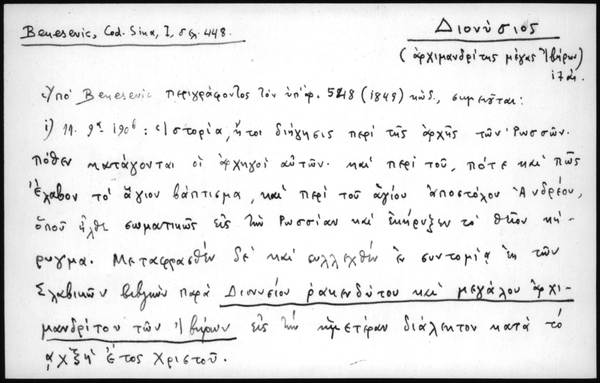 Benesevic, Cod. Sina, I, σελ. 448.
Διονύσιος
(ἀρχιμανδρίτης μέγας Ἰβήρων)
17 αι.
Ὑπὸ Benesevic περιγράφοντος τὸν ὑπ' ἀρ. 548 (1849) κώδ., σημειοῦται:
1) 11. 9r 190b : Ἱστορία, ἤτοι διήγησις περὶ τῆς ἀρχῆς τῶν Ῥωσσῶν.
πόθεν κατάγονται οἱ ἀρχηγοὶ αὐτῶν. καὶ περὶ τοῦ, πότε καὶ πῶς
ἔλαβον τὸ ἅγιον βάπτισμα, καὶ περὶ τοῦ ἁγίου ἀποστόλου Ἀνδρέου,
ὁποῦ ἦλθε σωματικῶς εἰς τὴν Ῥωσσίαν καὶ ἐκήρυξεν τὸ θεῖον κή-
ρυγμα. Μεταφρασθὲν δὲ καὶ συλλεχθὲν ἐν συντομίᾳ ἐκ τῶν
Σλαβικῶν βιβλίων παρὰ Διονυσίου ῥακενδύτου καὶ μεγάλου ἀρχι-
μανδρίτου τῶν Ἰβήρων εἰς τὴν ἡμετέραν διάλεκτον κατὰ τὸ
͵αχξη' ἔτος Χριστοῦ.